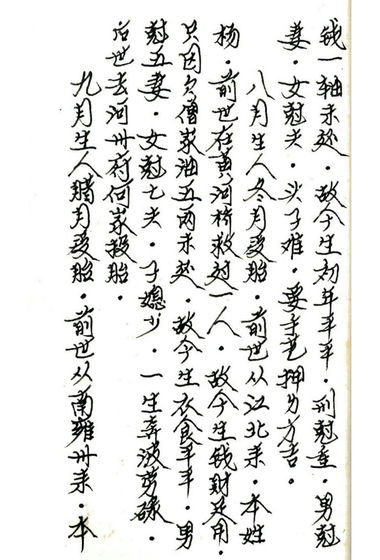 钱一轴未还．故今生初年平平．刑尅重．男尅
妻．女尅夫．头子难．要手艺押身方吉。
八月生人冬月受胎．前世从江北来．本姓
杨．前世在黄河桥救过一人．故今生钱财足用．
只因欠僧家油五两未还．故今生衣食平平．男
尅五妻．女尅七夫．子媳少．一生奔波劳碌．
后世去河州府何家投胎．
九月生人腊月受胎．前世从南雍州来．本